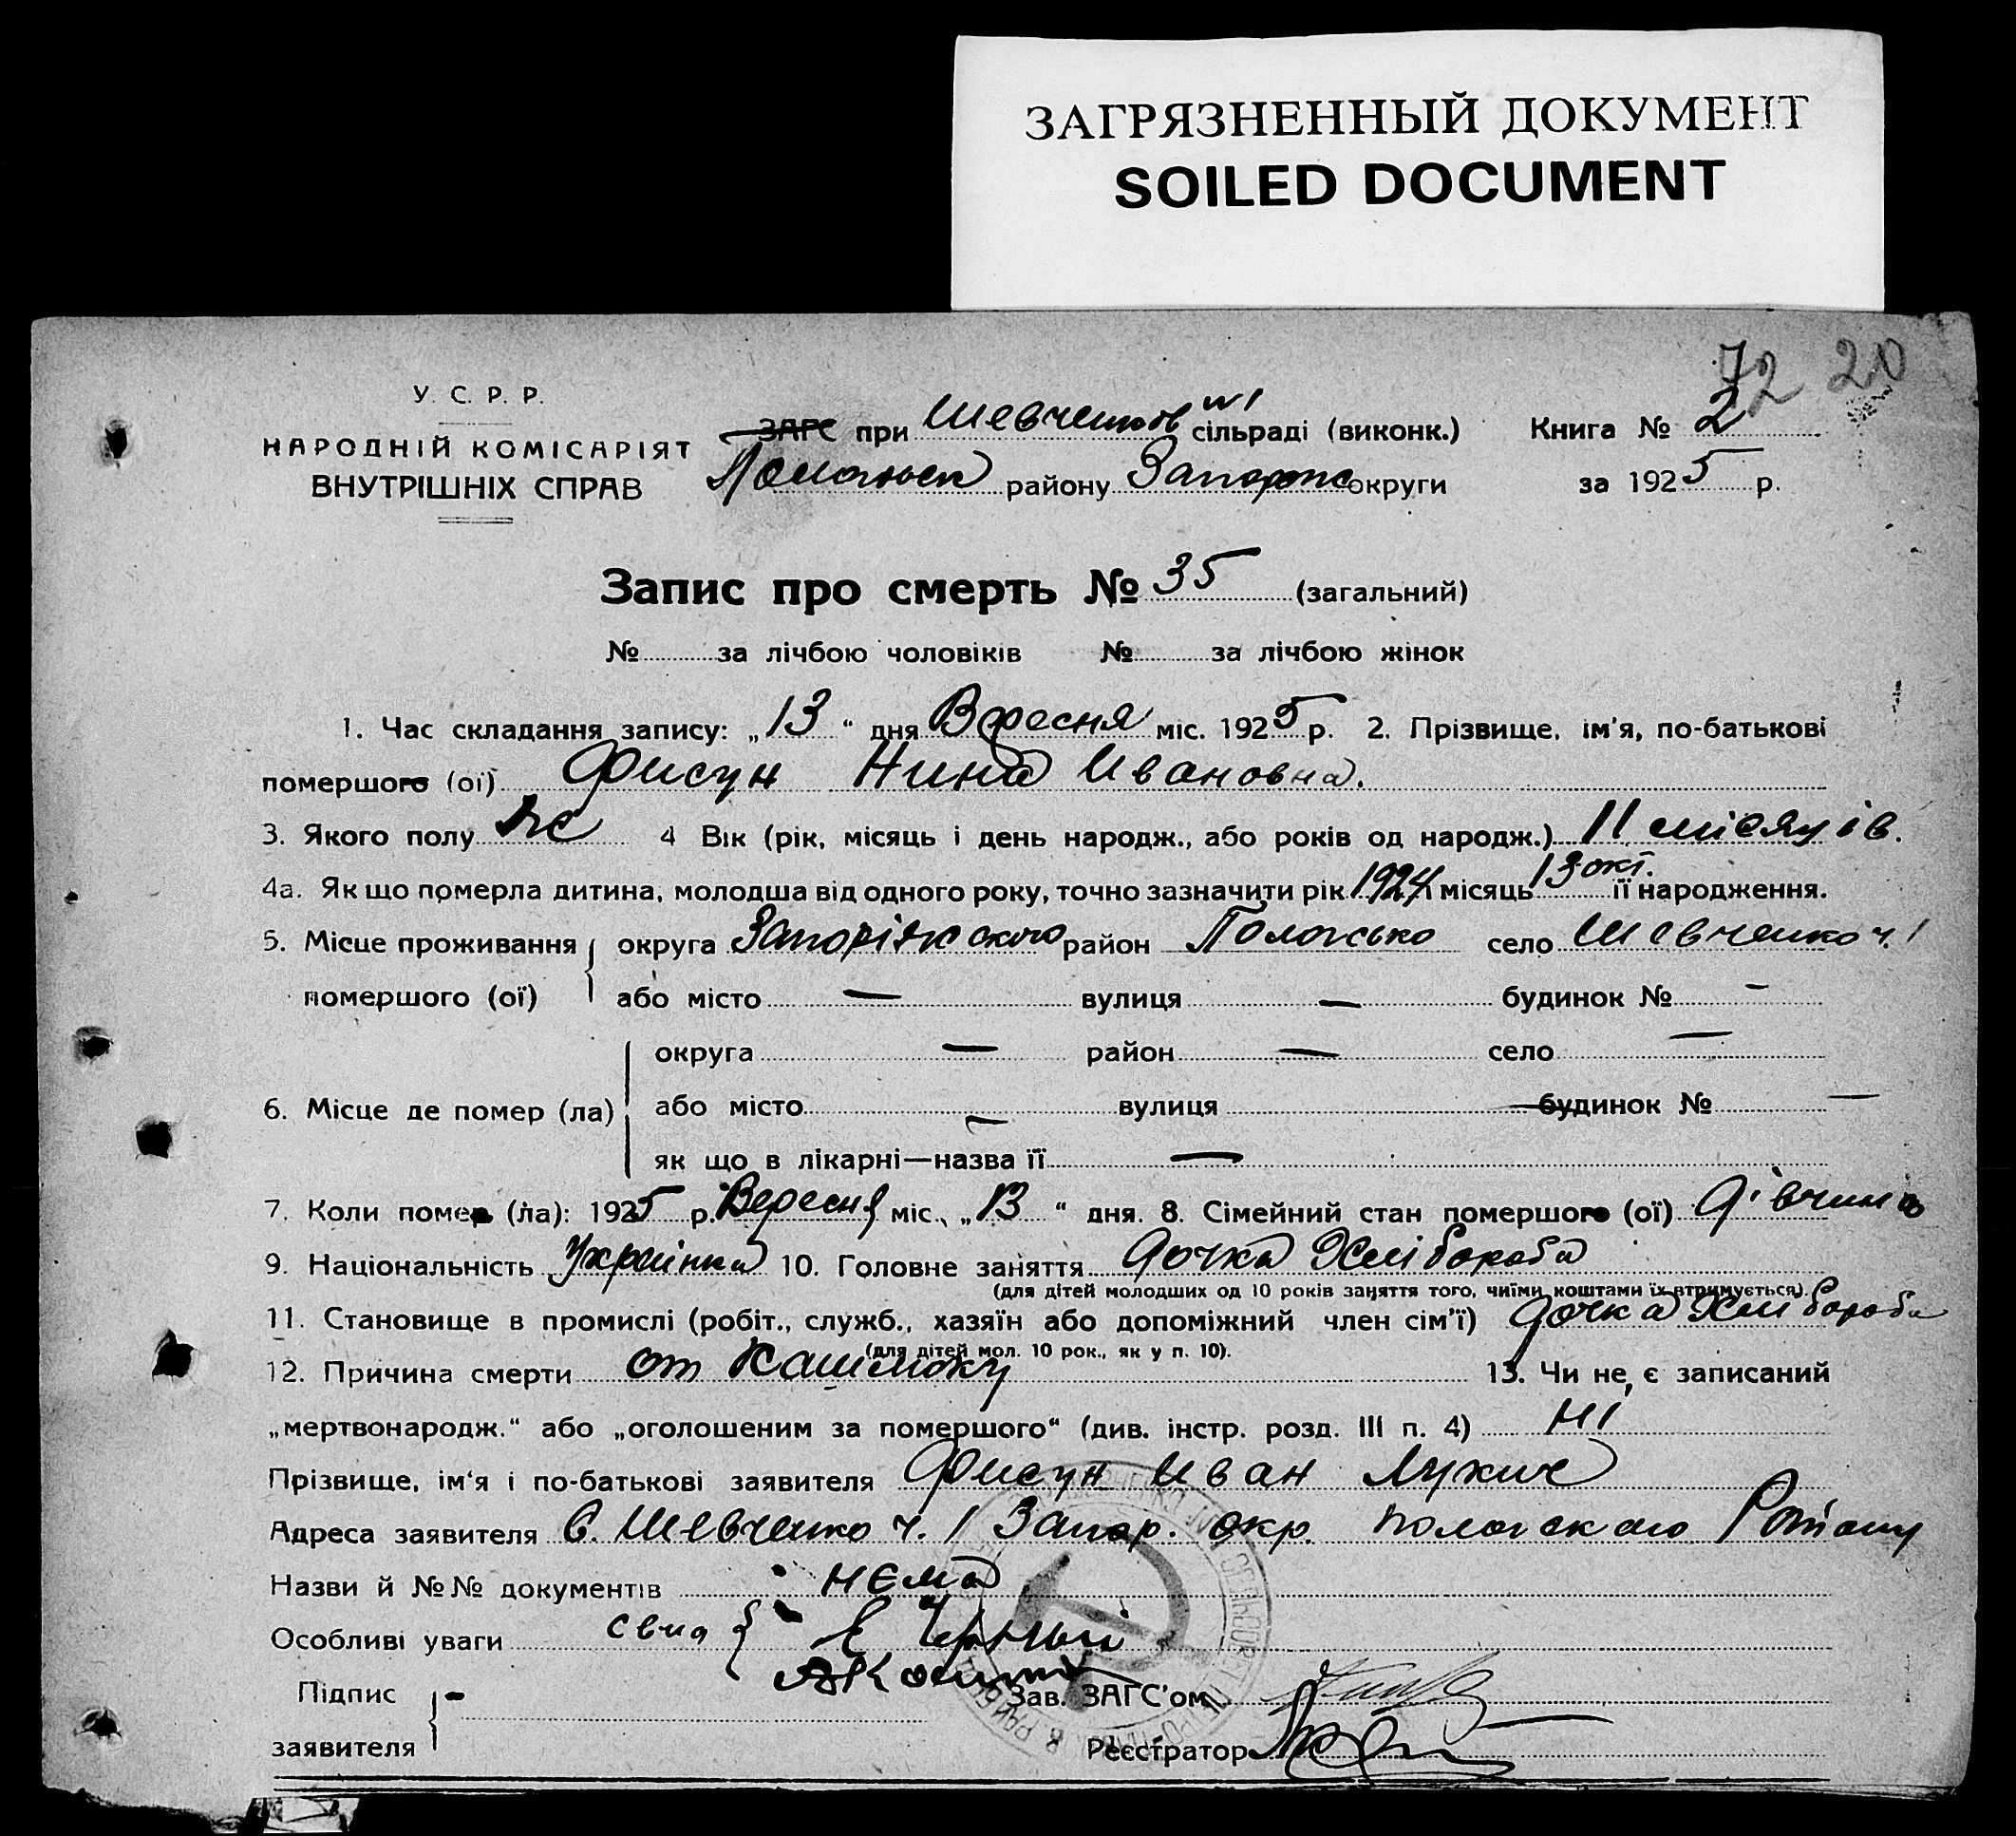 ЗАГРЯЗНЕННЫЙ ДОКУМЕНТ
SOILED DOCUMENT
72 20
У. С. Р. Р.
НАРОДНІЙ КОМІСАРІЯТ
ВНУТРІШНІХ СПРАВ
ЗАГС при Шевченков №1 сільраді (виконк.) Книга № 2
району Запорож округи за 1925 р.
Запис про смерть № 35 (загальний)
№ за лічбою чоловіків № за лічбою жінок
1. Час складання запису: „13“ дня Вересня міс. 1925 р. 2. Прізвище, ім'я, по-батькові
помершого (ої) Фисун Нина Ивановна.
3. Якого полу ж 4 Вік (рік, місяць і день народж., або років од народж.) 11 місяців.
4а. Як що померла дитина, молодша від одного року, точно зазначити рік 1924 місяць 13 окт. її народження.
5. Місце проживання округа Запоріжского район Пологсько село Шевченко ч. 1
помершого (ої) або місто — вулиця — будинок № —
округа — район — село —
6. Місце де помер (ла) або місто — вулиця будинок № —
як що в лікарні—назва її —
7. Коли помер (ла): 1925 р. Вересня міс., „13“ дня. 8. Сімейний стан помершого (ої) дівчина
9. Національність Українка 10. Головне заняття дочка Хлібороба
(для дітей молодших од 10 років заняття того, чиїми коштами їх втримується).
11. Становище в промислі (робіт., служб., хазяїн або допоміжний член сім'ї) дочка Хлібороба
(для дітей мол. 10 рок., як у п. 10).
12. Причина смерти от Кашлюку 13. Чи не є записаний
„мертвонародж.“ або „оголошеним за помершого“ (див. інстр. розд. III п. 4) ні
Прізвище, ім'я і по-батькові заявителя Фисун Иван Лукич
Адреса заявителя С. Шевченко ч. 1 Запор. окр. Пологского Району
Назви й №№ документів нема
Особливі уваги свид Чорный
Підпис
Зав. ЗАГС'ом
заявителя
Реєстратор